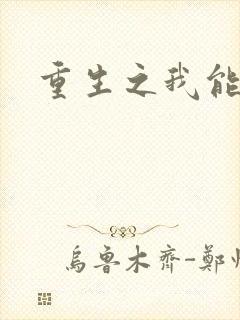 重生之我能
烏鲁木齐-鄭